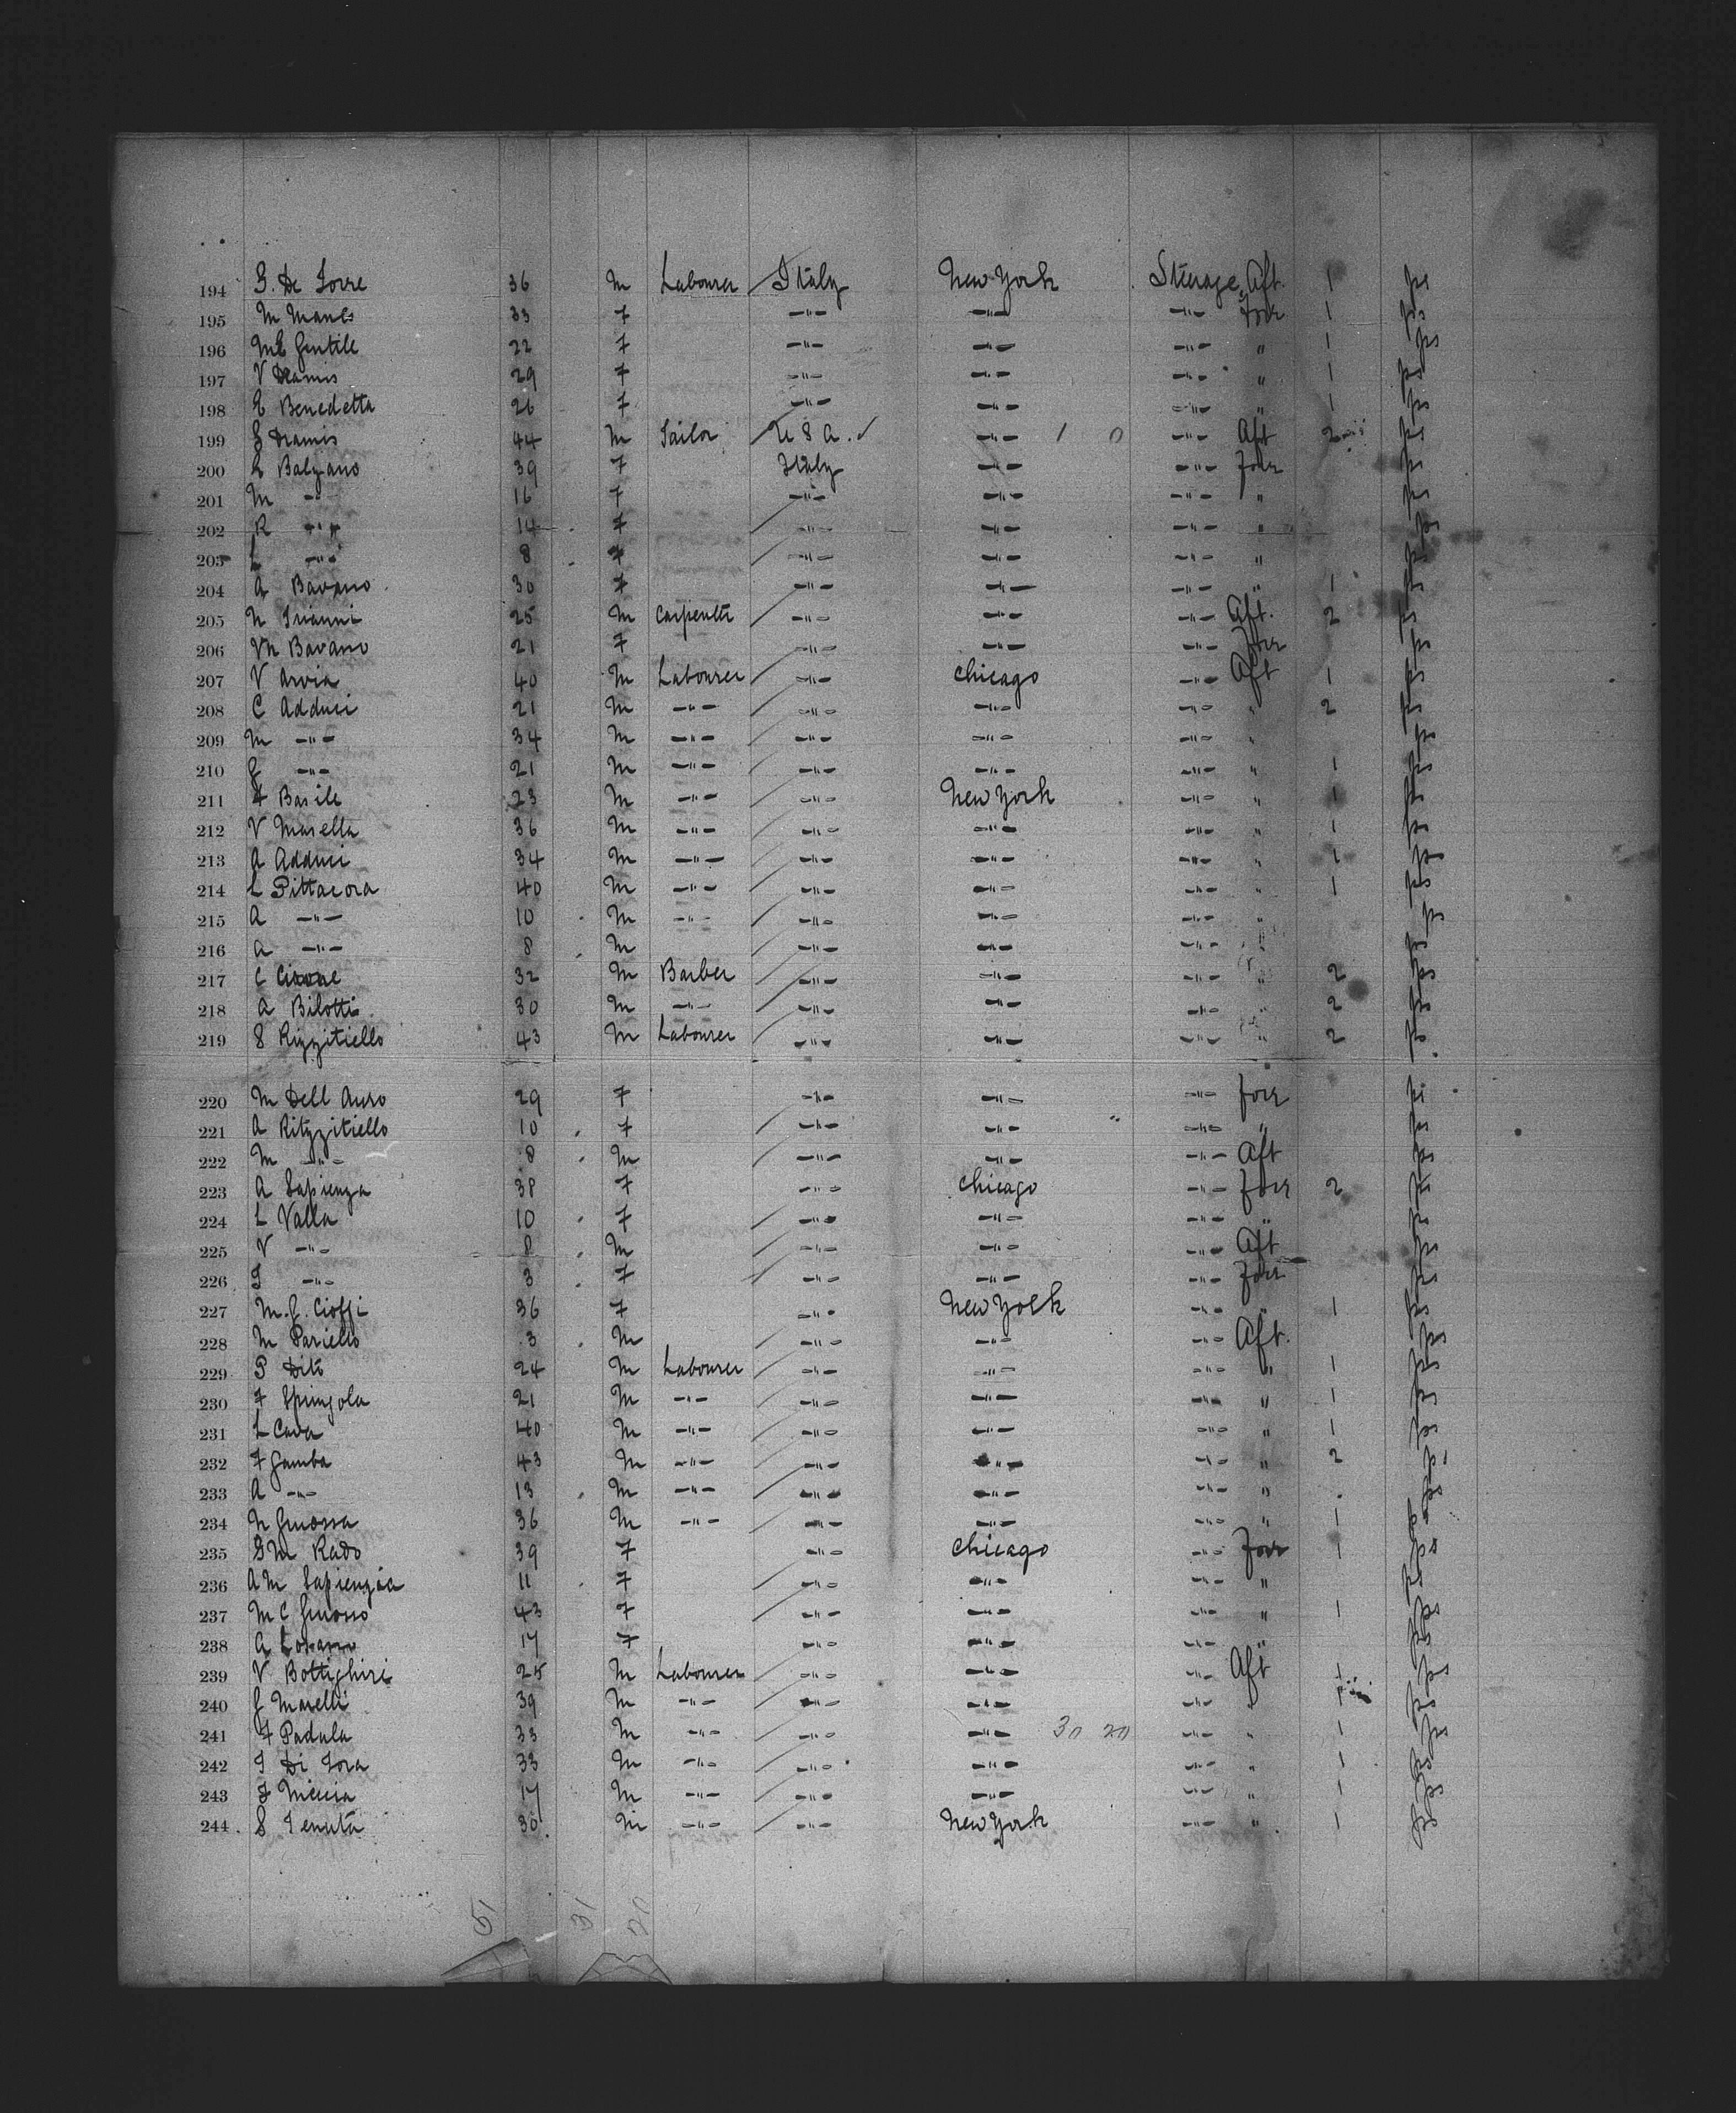 194 G. De Torre 36 m Labourer Italy New York Steerage Aft. 1 ps
195 M Manes 33 7 -"- -"- -"- forr 1 ps
196 ME Gentile 22 7 -"- -"- -"- " 1 ps
197 V Dramis 29 7 -"- -"- -"- " 1 ps
198 E Benedetta 26 7 -"- -"- -"- " 1 ps
199 G Dramis 44 m Tailor U S A. ✓ -"- 1 0 -"- Aft 2 ps
200 Balzano 39 7 Italy -"- -"- forr ps
201 M -"- 16 7 -"- -"- -"- " ps
202 R -"- 14 7 -"- -"- -"- " ps
203 L -"- 8 7 -"- -"- -"- " ps
204 A Bavano 30 7 -"- -"- -"- " 1 ps
205 N Trianni 25 m Carpenter -"- -"- -"- Aft. 2 ps
206 M Bavano 21 7 -"- -"- -"- forr ps
207 V Arvia 40 m Labourer -"- Chicago -"- Aft 1 ps
208 C Adduci 21 m -"- -"- -"- -"- " 2 ps
209 M -"- 34 m -"- -"- -"- -"- " ps
210 G -"- 21 m -"- -"- -"- -"- " 1 ps
211 F Basile 23 m -"- -"- New York -"- " 1 ps
212 V Masella 36 m -"- -"- -"- -"- " 1 ps
213 A Adduci 34 m -"- -"- -"- -"- " 1 ps
214 L Pittacora 40 m -"- -"- -"- -"- " 1 ps
215 A -"- 10 m -"- -"- -"- -"- " ps
216 A -"- 8 m -"- -"- -"- " ps
217 C 32 m Barber -"- -"- -"- " 2 ps
218 A Bilotti 30 m -"- -"- -"- -"- 2 ps
219 S Rizzitiello 43 m Labourer -"- -"- -"- " 2 ps
220 M Dell Auro 29 7 -"- -"- -"- forr ps
221 A Ritzzitiello 10 7 -"- -"- -"- " ps
222 M -"- 8 m -"- -"- -"- Aft ps
223 A Sapienza 38 7 -"- Chicago -"- forr 2 ps
224 L Valla 10 7 -"- -"- -"- " ps
225 V -"- 8 m -"- -"- -"- Aft ps
226 -"- 3 7 -"- -"- -"- forr ps
227 M.G. Cioffi 36 7 -"- New York -"- " 1 ps
228 M Pariello 3 m -"- -"- -"- Aft. ps
229 P Dito 24 m Labourer -"- -"- -"- " 1 ps
230 F Spingola 21 m -"- -"- -"- -"- " 1 ps
231 L Cava 40 m -"- -"- -"- -"- " 1 ps
232 F Gamba 43 m -"- -"- -"- -"- " 2 ps
233 A -"- 13 m -"- -"- -"- -"- " ps
234 N Grossa 36 m -"- -"- -"- -"- " 1 ps
235 G M Rado 39 7 -"- Chicago -"- forr 1 ps
236 A M Sapienzia 11 7 -"- -"- -"- " ps
237 M C Grosso 43 7 -"- -"- -"- " 1 ps
238 A 17 7 -"- -"- -"- " ps
239 V Bottighiri 25 m Labourer -"- -"- -"- Aft 1 ps
240 G Maselli 39 m -"- -"- -"- -"- " 1 ps
241 F Padula 33 m -"- -"- -"- 30 20 -"- " 1 ps
242 Di Iora 33 m -"- -"- -"- -"- " 1 ps
243 F 17 m -"- -"- -"- -"- " 1 ps
244. S Tenuta 30 m -"- -"- New York -"- " 1 ps
51 31 20